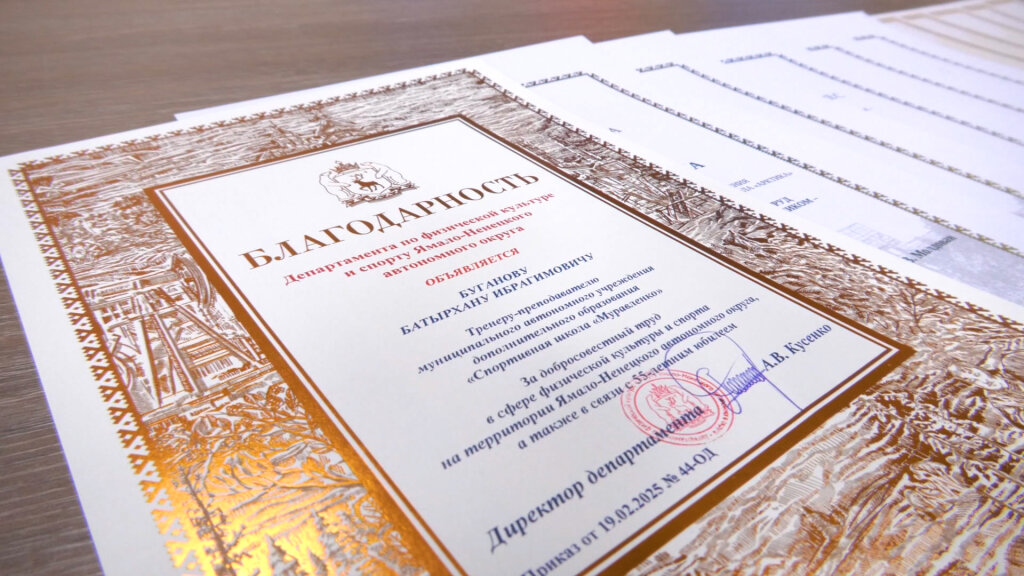 БЛАГОДАРНОСТЬ
Департамента по физической культуре
и спорту Ямало-Ненецкого
автономного округа
ОБЪЯВЛЯЕТСЯ
БУГАНОВУ
БАТЫРХАНУ ИБРАГИМОВИЧУ
Тренеру-преподавателю
муниципального автономного учреждения
дополнительного образования
«Спортивная школа «Муравленко»
За добросовестный труд
в сфере физической культуры и спорта
на территории Ямало-Ненецкого автономного округа,
а также в связи с 55-летним юбилеем
Директор департамента А.В. Кусенко
Приказ от 19.02.2025 № 44-ОД